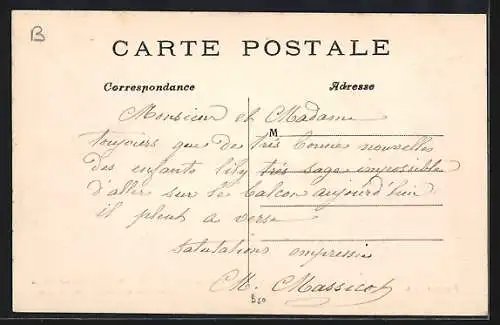 B
CARTE POSTALE
Correspondance Adresse
Monsieur et Madame
M
toujours que de très bonnes nouvelles
des enfants lily très sage impossible
d'aller sur le balcon aujourd'hui
il pleut a verse
salutations empressées
M. Massicot